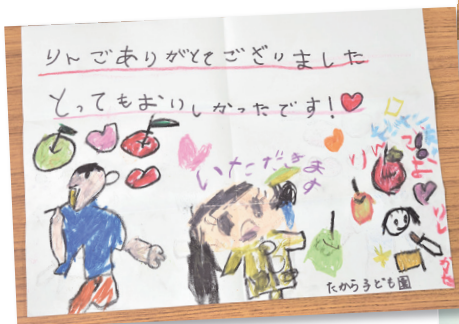 りんごありがとうござりました
とってもおいしかったです!
いただきます
りんご
たから子ども園